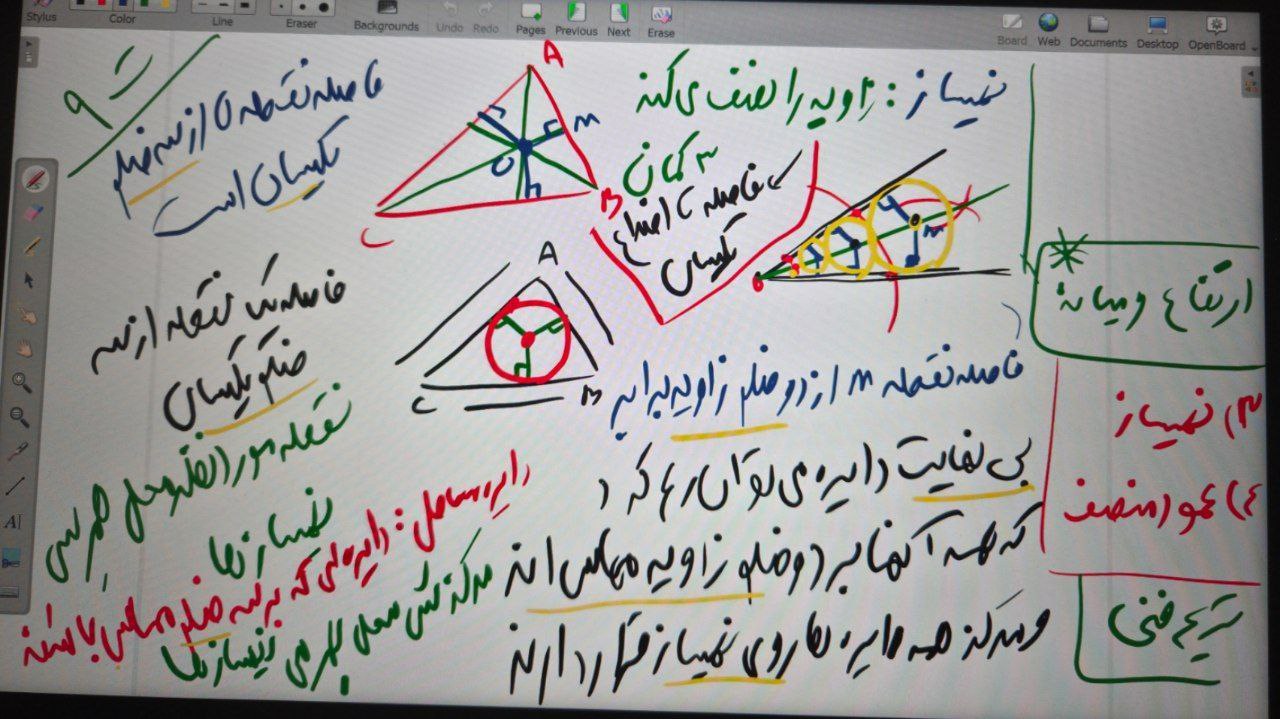 Stylus
Color
Line
Eraser
Backgrounds
Undo
Redo
Pages
Previous
Next
Erase
Board
Web
Documents
Desktop
OpenBoard
نیمساز : زاویه را نصف می‌کند
۳ کمان
فاصله تا اضلاع
یکسان
M
ارتفاع و میانه
۳) نیمساز
۴) عمود منصف
ترسیم فنی
فاصله نقطه M از دو ضلع زاویه برابر
بی نهایت دایره می توان رسم کرد
که همه آنها بر دو ضلع زاویه مماس اند
و مرکز همه دایره ها روی نیمساز قرار دارند
A
M
O
B
C
A
B
C
فاصله نقطه O از سه ضلع
یکسان است
فاصله یک نقطه از سه
ضلع یکسان
نقطه مورد نظر محل همرسی
نیمسازها
دایره محاطی : دایره‌ای که بر سه ضلع مماس باشد
مرکزش محل همرسی نیمسازها